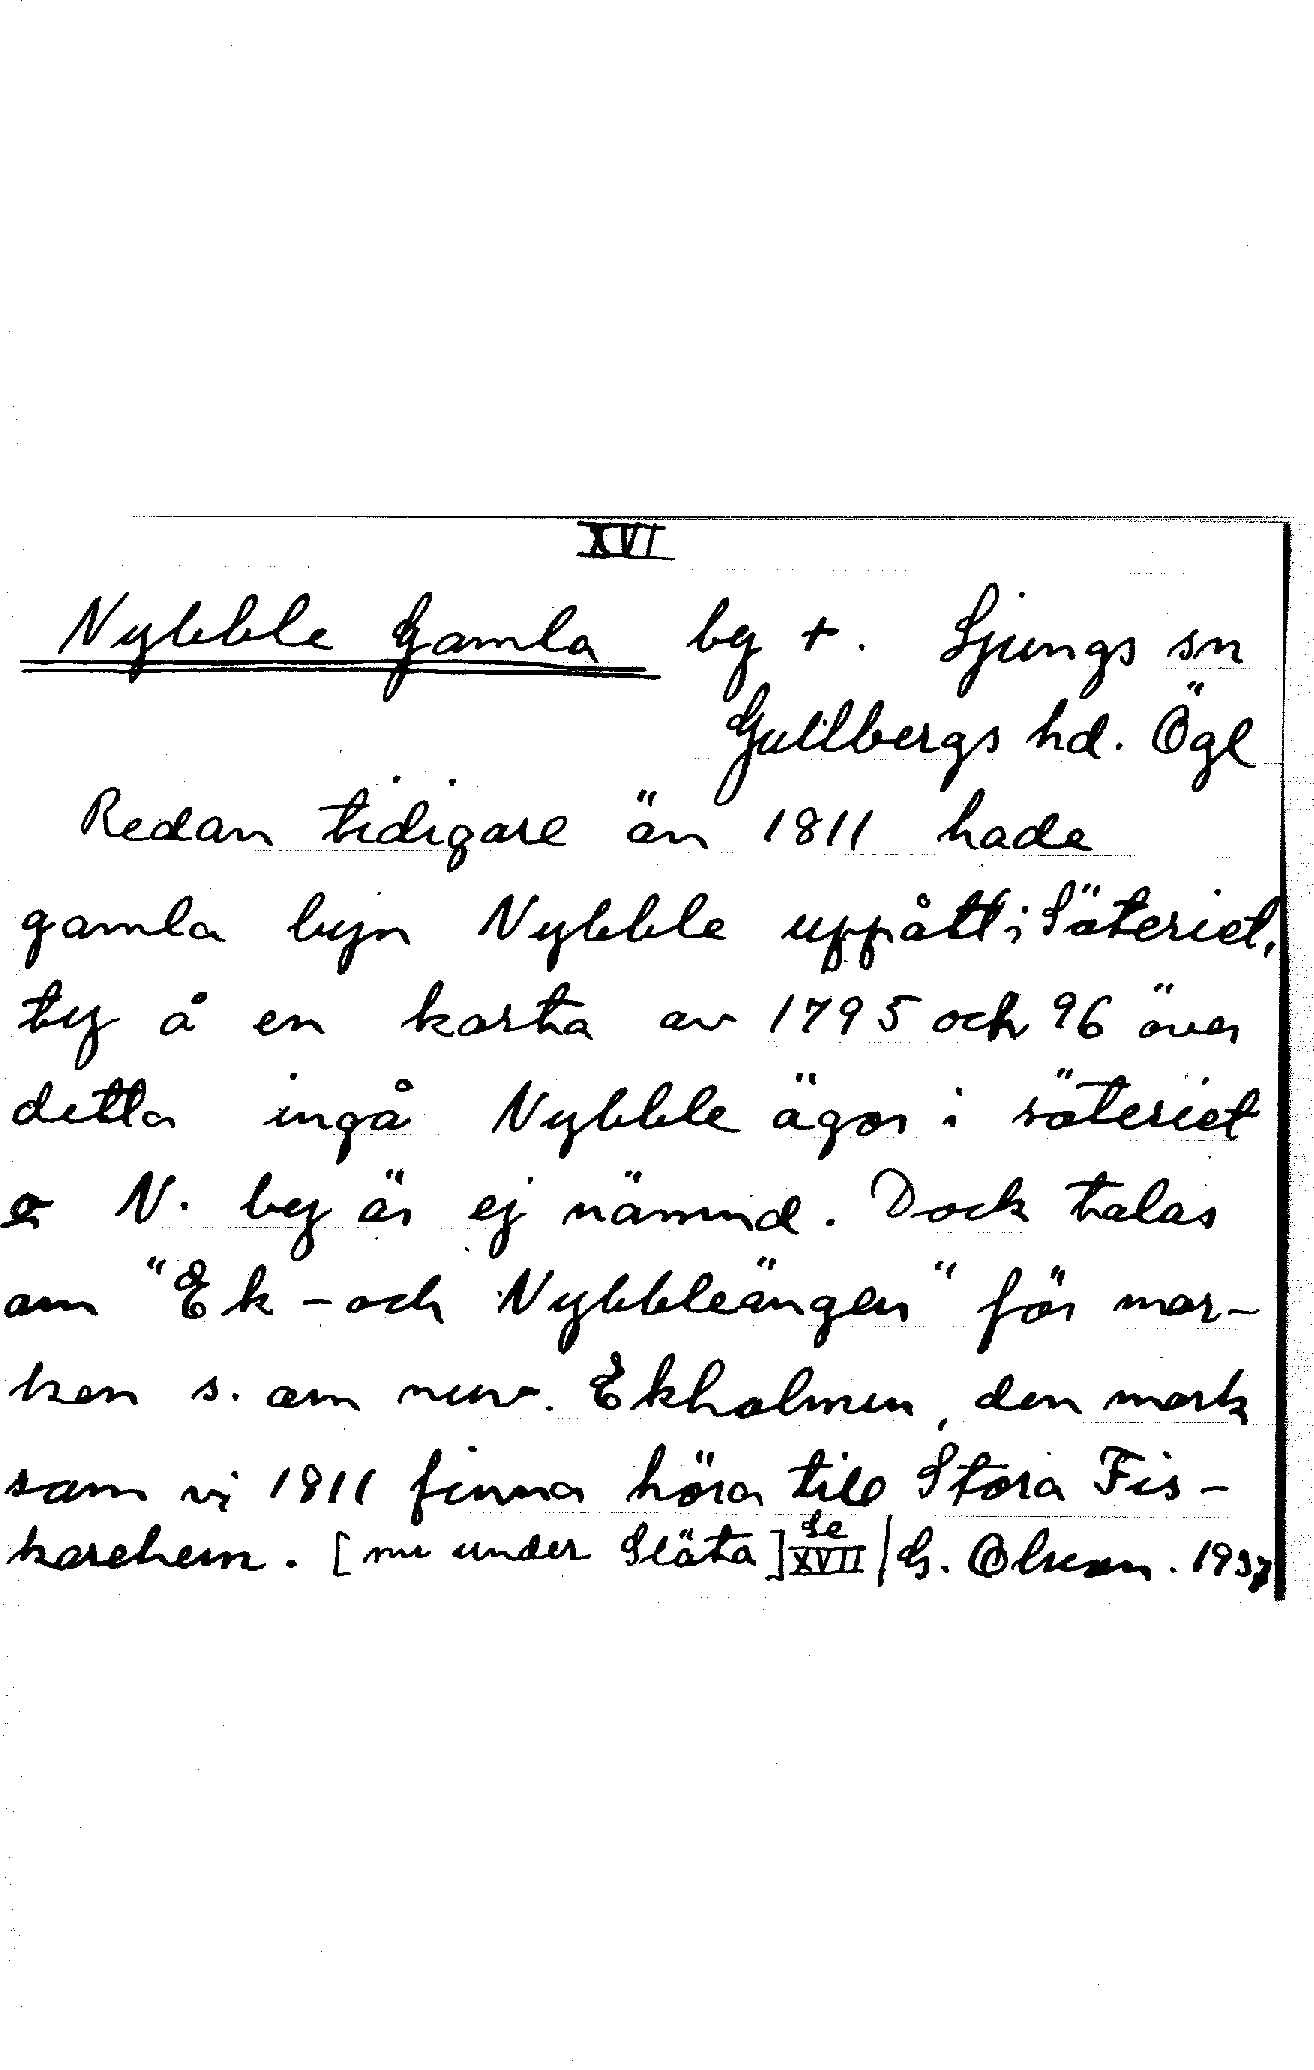 XVI
Nybble Gamla by +. Ljungs sn
Gullbergs hd. Ögl
Redan tidigare än 1811 hade
gamla byn Nybble uppått i Säteriet,
ty å en karta av 1795 och 96 över
detta ingå Nybble ägor i säteriet
o N. by är ej nämnd. Dock talas
om "Ek-och Nybbleängen" för mar-
ken s. om nuv. Ekholmen, den mark
som vi 1811 finna höra till Stora Fis-
karehem. [nu under Släta] se XVII / G. Olsson. 1937